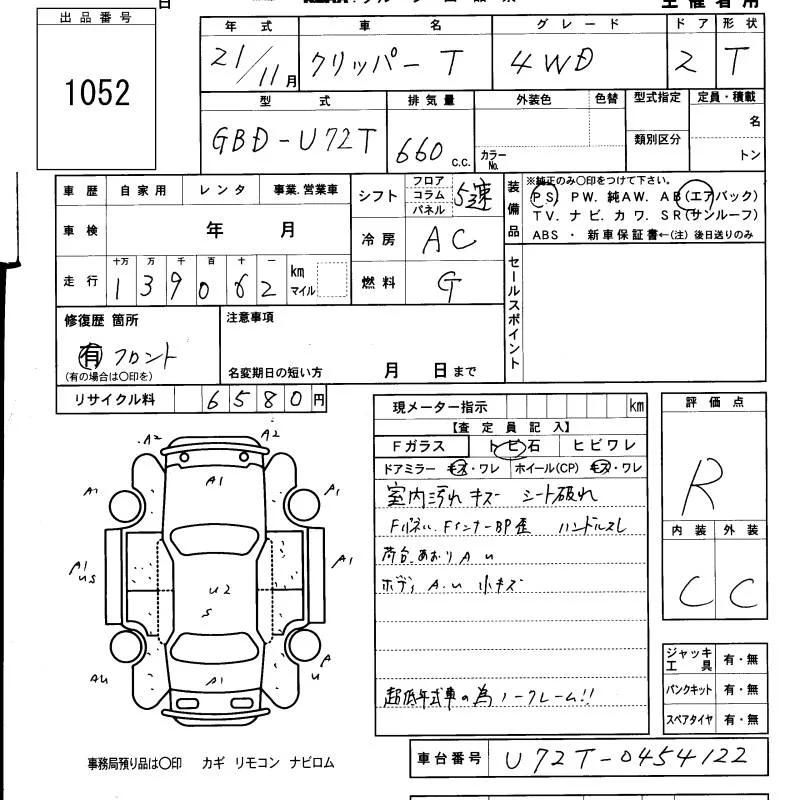 出品番号
1052
年式 車名 グレード ドア 形状
21/11月 クリッパー T 4WD 2 T
型式 排気量 外装色 色替 型式指定 定員・積載
GBD-U72T 660 c.c. カラーNo. 類別区分 名
トン
車歴 自家用 レンタ 事業.営業車
車検 年 月
走行 十万 万 千 百 十 一
139062 km
マイル
シフト フロア コラム パネル 5速
冷房 AC
燃料 G
装備品
※純正のみ〇印をつけて下さい。
PS. PW. 純AW. AB(エアバック)
TV. ナビ. カワ. SR(サンルーフ)
ABS ・ 新車保証書←(注) 後日送りのみ
セールスポイント
修復歴 箇所
有 フロント
(有の場合は〇印を)
注意事項
名変期日の短い方 月 日まで
リサイクル料 6580円
現メーター指示 km
【査定員記入】
Fガラス トビ石 ヒビワレ
ドアミラー キズ・ワレ ホイール(CP) キズ・ワレ
室内汚れ キズ シート破れ
Fパネル. FインナーBP歪 ハンドルスレ
荷台.あおり A u
ボディ A.u 小キズ
超低年式車の為ノークレーム!!
評価点
R
内装 外装
C C
ジャッキ工具 有・無
パンクキット 有・無
スペアタイヤ 有・無
A2 A2
A1
A1 A1
A1
us
A1
U2
S
Au
A1
A
u
事務局預り品は〇印 カギ リモコン ナビロム
車台番号 U72T-0454122